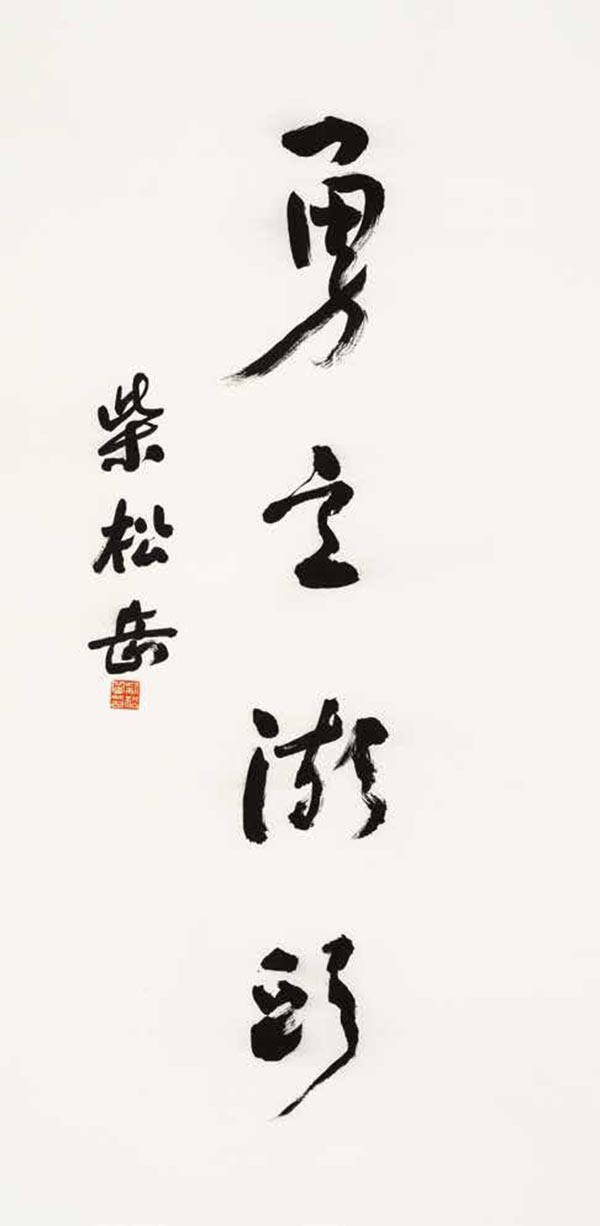 勇立潮头
柴松岳